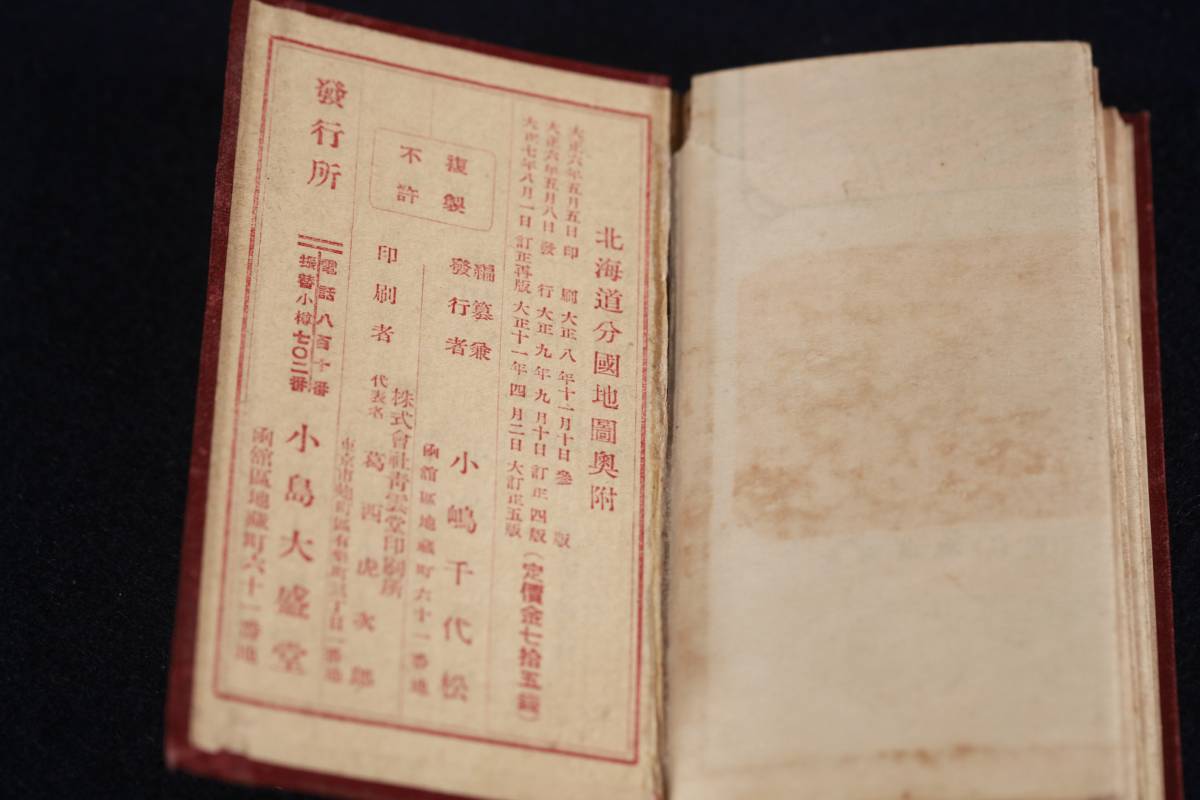 北海道分國地圖奥附
大正六年五月五日印刷 大正八年十一月十日參版
大正六年五月八日發行 大正九年九月十日訂正四版
大正七年八月一日訂正再版 大正十一年四月二日大訂正五版
(定價金七拾五錢)
複製
不許
編纂兼
發行者
小嶋千代松
函館區地藏町六十一番地
印刷者
株式會社青雲堂印刷所
代表名 葛西虎次郎
發行所
電話八百十番
振替小樽七〇二番
小島大盛堂
函館區地藏町六十一番地